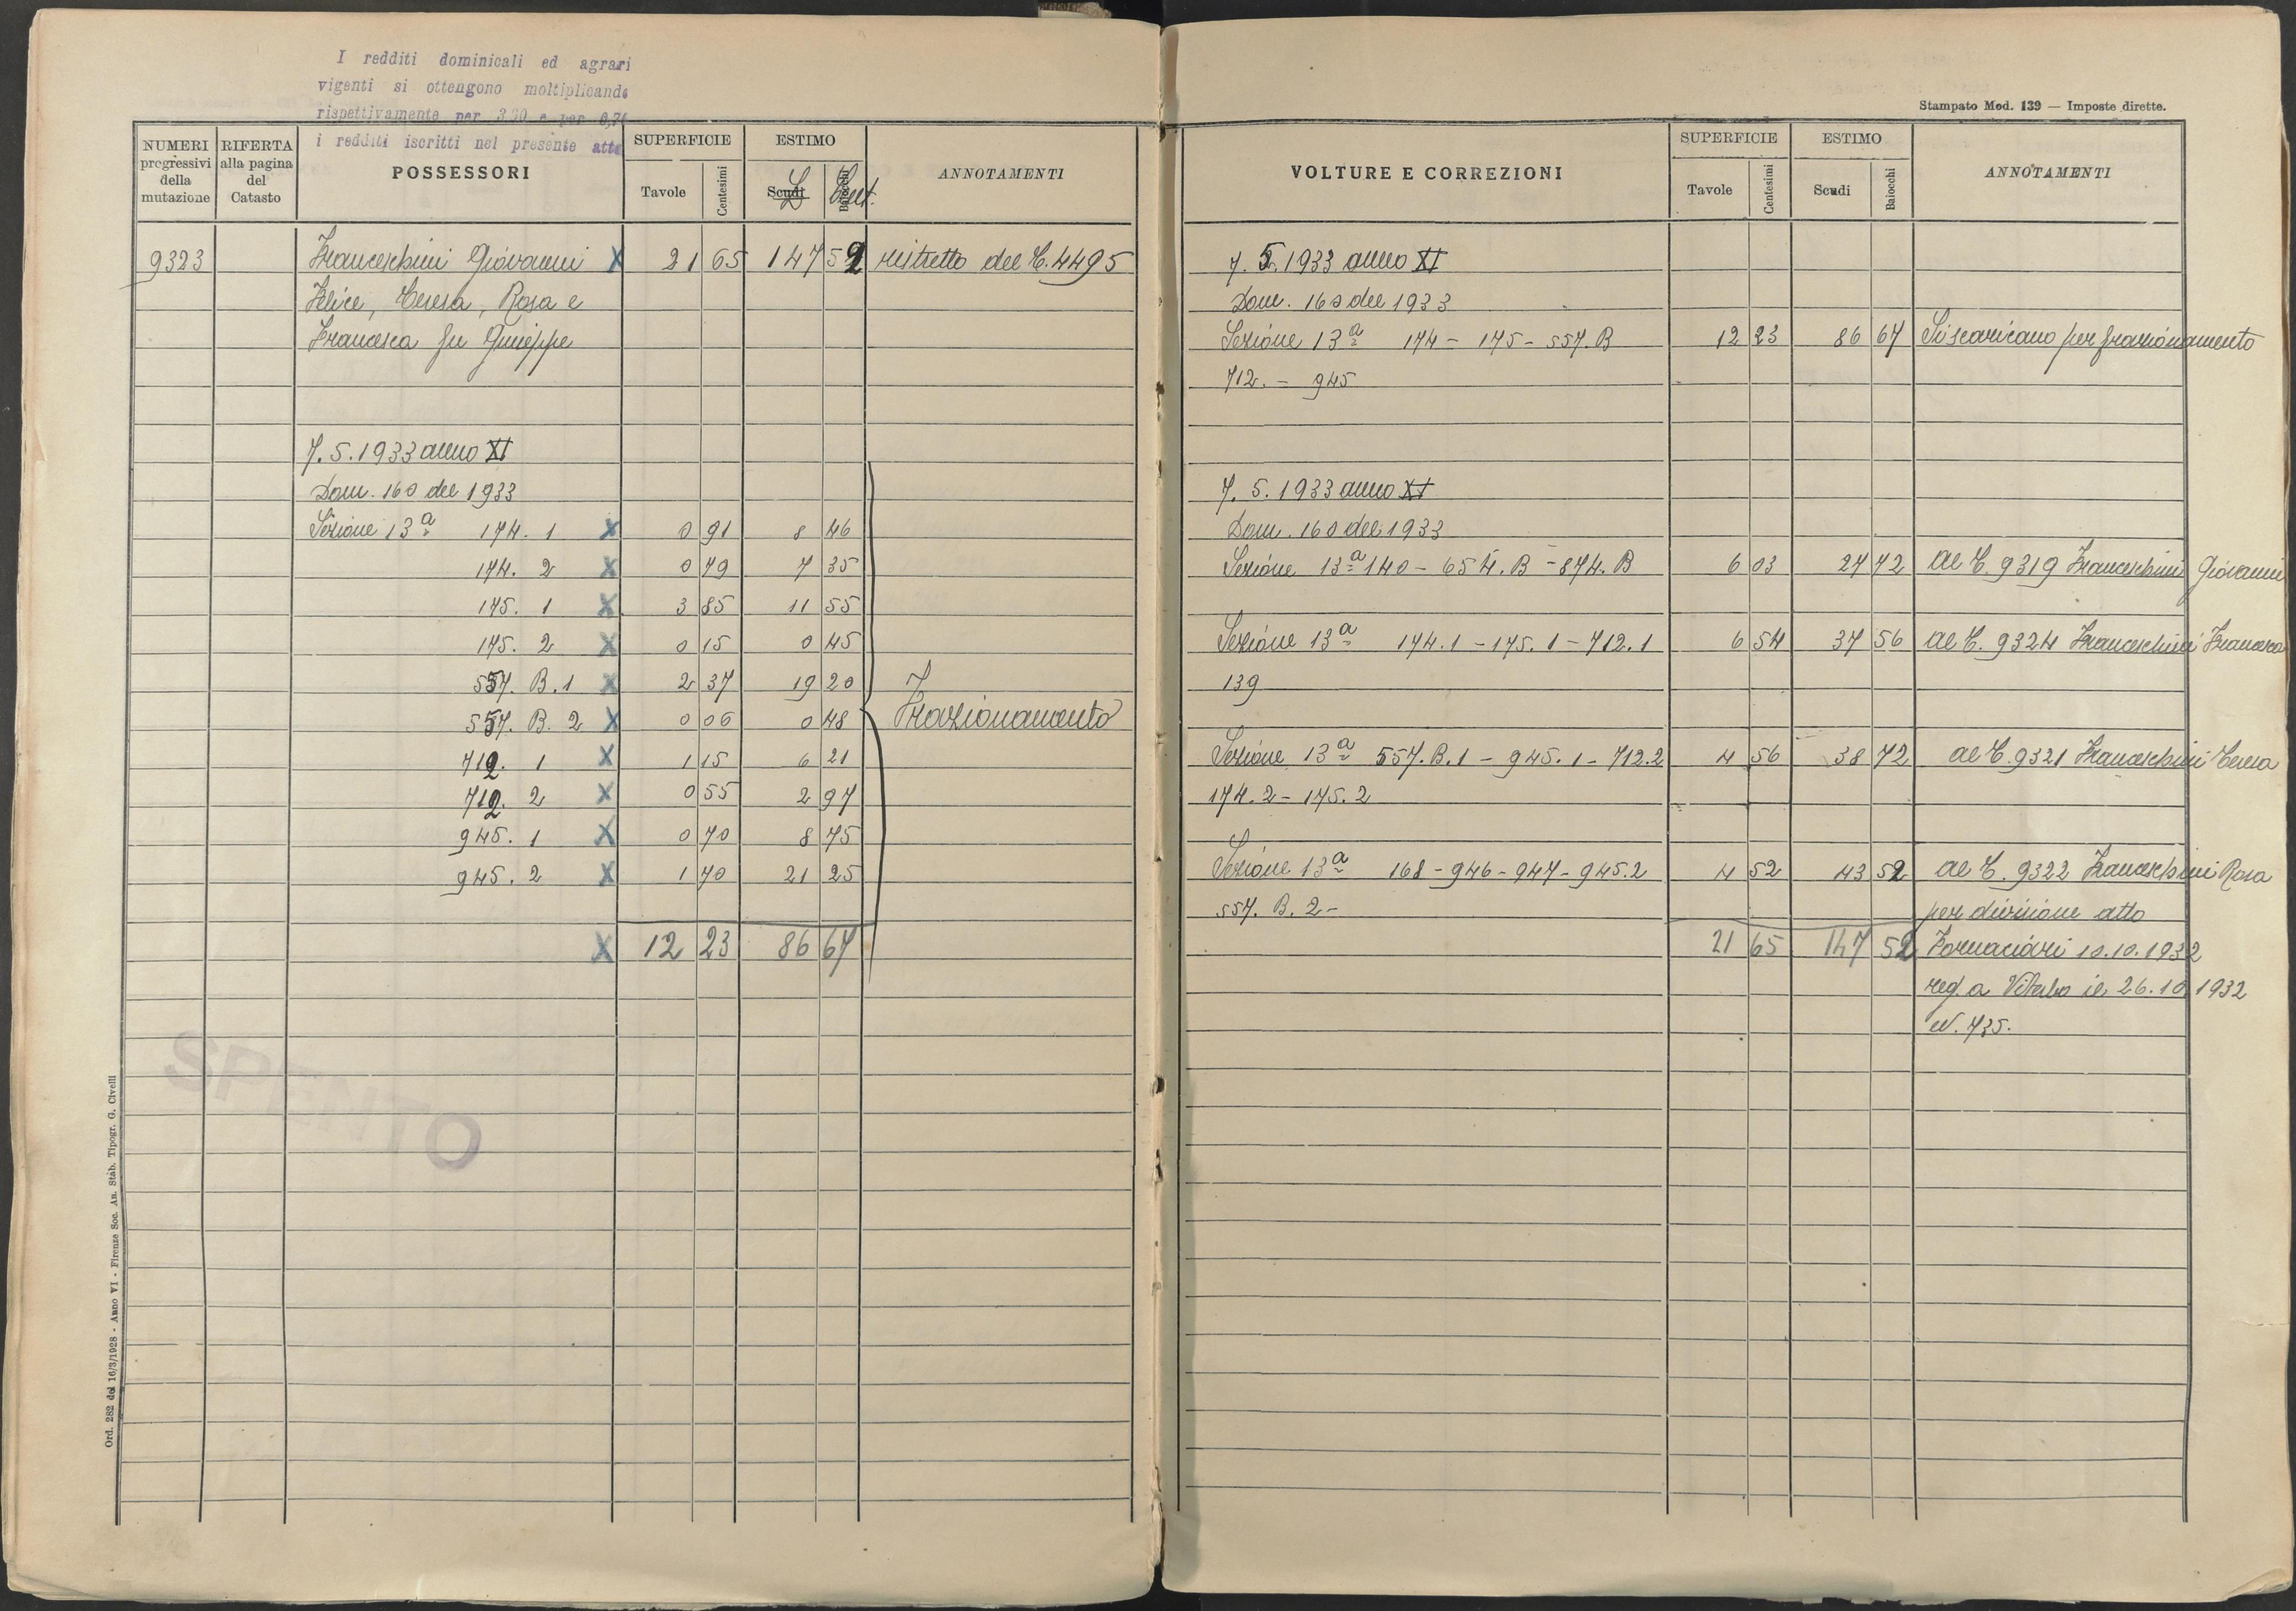 I redditi dominicali ed agrari
vigenti si ottengono moltiplicando
rispettivamente per 3,50 e per 0,70
i redditi iscritti nel presente atto
NUMERI progressivi della mutazione
RIFERTA alla pagina del Catasto
POSSESSORI
SUPERFICIE Tavole Centesimi
ESTIMO Scudi £ Baiocchi Cent.
ANNOTAMENTI
9323 Franceschini Giovanni X 21 65 147 52 ristretto del C. 4495
Felice, Teresa, Rosa e
Francesca fu Giuseppe
7. 5. 1933 anno XI
Dom. 160 del 1933
Sezione 13ª 174. 1 X 0 91 8 46
174. 2 X 0 79 7 35
175. 1 X 3 85 11 55
175. 2 X 0 15 0 45
557. B. 1 X 2 37 19 20
557. B. 2 X 0 06 0 48 Frazionamento
712. 1 X 1 15 6 21
712. 2 X 0 55 2 97
945. 1 X 0 70 8 75
945. 2 X 1 70 21 25
X 12 23 86 67
SPENTO
Ord. 282 del 16/3/1928 - Anno VI - Firenze Soc. An. Stab. Tipogr. G. Civelli
Stampato Mod. 139 — Imposte dirette.
VOLTURE E CORREZIONI
SUPERFICIE Tavole Centesimi
ESTIMO Scudi Baiocchi
ANNOTAMENTI
7. 5. 1933 anno XI
Dom. 160 del 1933
Sezione 13ª 174 - 175 - 557. B 12 23 86 67 Si scaricano per frazionamento
712. - 945
7. 5. 1933 anno XI
Dom. 160 del 1933
Sezione 13ª 140 - 654. B - 874. B 6 03 27 72 al C. 9319 Franceschini Giovanni
Sezione 13ª 174.1 - 175. 1 - 712. 1 6 54 37 56 al C. 9324 Franceschini Francesca
139
Sezione 13ª 557. B. 1 - 945. 1 - 712. 2 4 56 38 72 al C. 9321 Franceschini Teresa
174. 2 - 175. 2
Sezione 13ª 168 - 946 - 947 - 945. 2 4 52 43 52 al C. 9322 Franceschini Rosa
557. B. 2 - per divisione atto
21 65 147 52 Fornaciari 10.10.1932
reg. a Viterbo il 26.10.1932
N. 735.